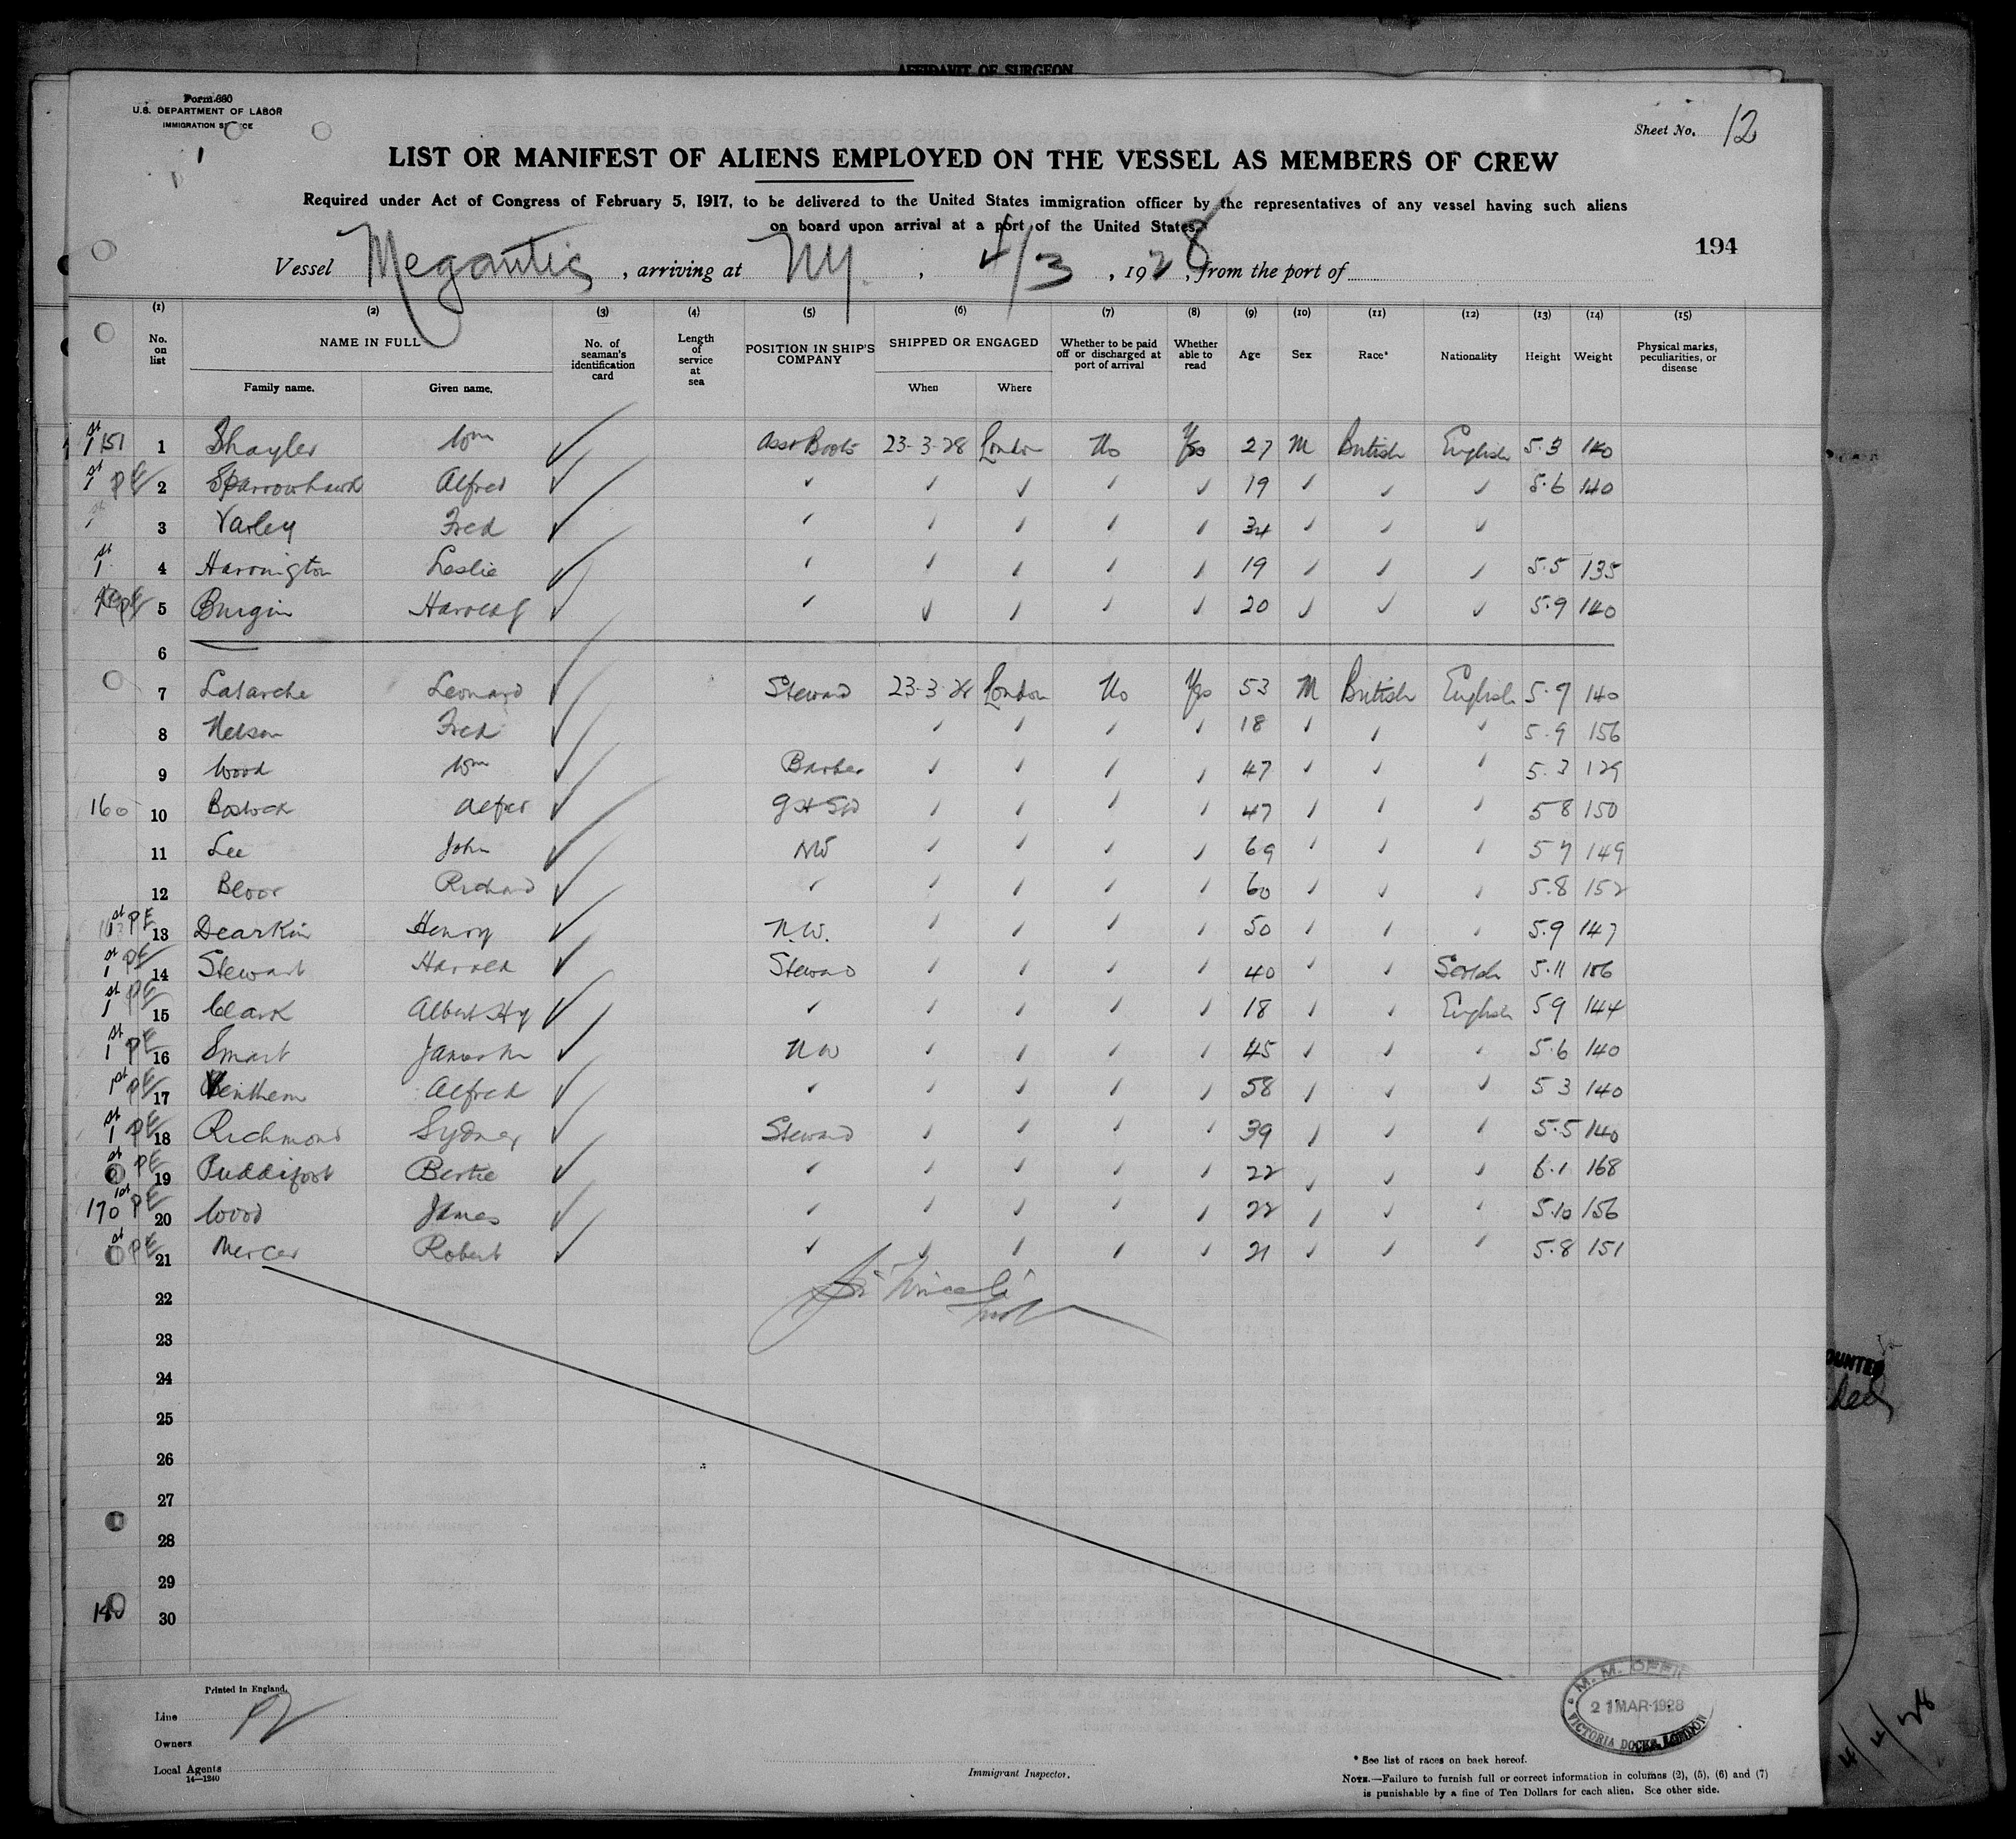 AFFIDAVIT OF SURGEON
Form 680
U.S. DEPARTMENT OF LABOR
IMMIGRATION SERVICE
Sheet No. 12
LIST OR MANIFEST OF ALIENS EMPLOYED ON THE VESSEL AS MEMBERS OF CREW
Required under Act of Congress of February 5, 1917, to be delivered to the United States immigration officer by the representatives of any vessel having such aliens
on board upon arrival at a port of the United States.
194
Vessel Megantic, arriving at NY, 4/3, 1928, from the port of
(1) (2) (3) (4) (5) (6) (7) (8) (9) (10) (11) (12) (13) (14) (15)
No. on list NAME IN FULL No. of seaman's identification card Length of service at sea POSITION IN SHIP'S COMPANY SHIPPED OR ENGAGED Whether to be paid off or discharged at port of arrival Whether able to read Age Sex Race* Nationality Height Weight Physical marks, peculiarities, or disease
Family name. Given name. When Where
1st 151 1 Shayler Wm ✓ Asst Boots 23-3-28 London No Yes 27 M British English 5.3 140
1st PE 2 Sparrowhawk Alfred ✓ ✓ ✓ ✓ ✓ ✓ 19 ✓ ✓ ✓ 5.6 140
3 Varley Fred ✓ ✓ ✓ ✓ ✓ ✓ 34 ✓ ✓ ✓
1st 4 Harrington Leslie ✓ ✓ ✓ ✓ ✓ ✓ 19 ✓ ✓ ✓ 5.5 135
PE 5 Burgin Harold ✓ ✓ ✓ ✓ ✓ ✓ 20 ✓ ✓ ✓ 5.9 140
6
7 Latarche Leonard ✓ Steward 23-3-28 London No Yes 53 M British English 5.9 140
8 Nelson Fred ✓ ✓ ✓ ✓ ✓ 18 ✓ ✓ ✓ 5.9 156
9 Wood Wm ✓ Barber ✓ ✓ ✓ ✓ 47 ✓ ✓ ✓ 5.3 129
160 10 Bostock Alfred ✓ ✓ ✓ ✓ ✓ 47 ✓ ✓ ✓ 5 8 150
11 Lee John ✓ NW ✓ ✓ ✓ ✓ 69 ✓ ✓ ✓ 5 7 149
12 Bloor Richard ✓ ✓ ✓ ✓ ✓ ✓ 60 ✓ ✓ ✓ 5.8 152
1st PE 13 Dearkin Henry ✓ N.W. ✓ ✓ ✓ ✓ 50 ✓ ✓ ✓ 5.9 147
1st PE 14 Stewart Harold ✓ Steward ✓ ✓ ✓ ✓ 40 ✓ ✓ Scotch 5.11 156
1st PE 15 Clark Albert Hy ✓ ✓ ✓ ✓ ✓ ✓ 18 ✓ ✓ English 5 9 144
1st PE 16 Smart ✓ NW ✓ ✓ ✓ ✓ 45 ✓ ✓ ✓ 5.6 140
1st PE 17 Alfred ✓ ✓ ✓ ✓ ✓ ✓ 58 ✓ ✓ ✓ 5 3 140
1st PE 18 Richmond Sydney ✓ Steward ✓ ✓ ✓ ✓ 39 ✓ ✓ ✓ 5.5 140
st PE 19 Puddifoot Bertie ✓ ✓ ✓ ✓ ✓ ✓ 22 ✓ ✓ ✓ 6.1 168
170 1st PE 20 Wood James ✓ ✓ ✓ ✓ ✓ ✓ 22 ✓ ✓ ✓ 5.10 156
st PE 21 Mercer Robert ✓ ✓ ✓ ✓ ✓ ✓ 21 ✓ ✓ ✓ 5.8 151
22
23
24
25
26
27
28
29
180 30
Printed in England.
Line
Owners
Local Agents
14—1240
Immigrant Inspector.
M. M. OFFICE
21 MAR 1928
VICTORIA DOCKS, LONDON
* See list of races on back hereof.
NOTE.—Failure to furnish full or correct information in columns (2), (5), (6) and (7)
is punishable by a fine of Ten Dollars for each alien. See other side.
4/4/28